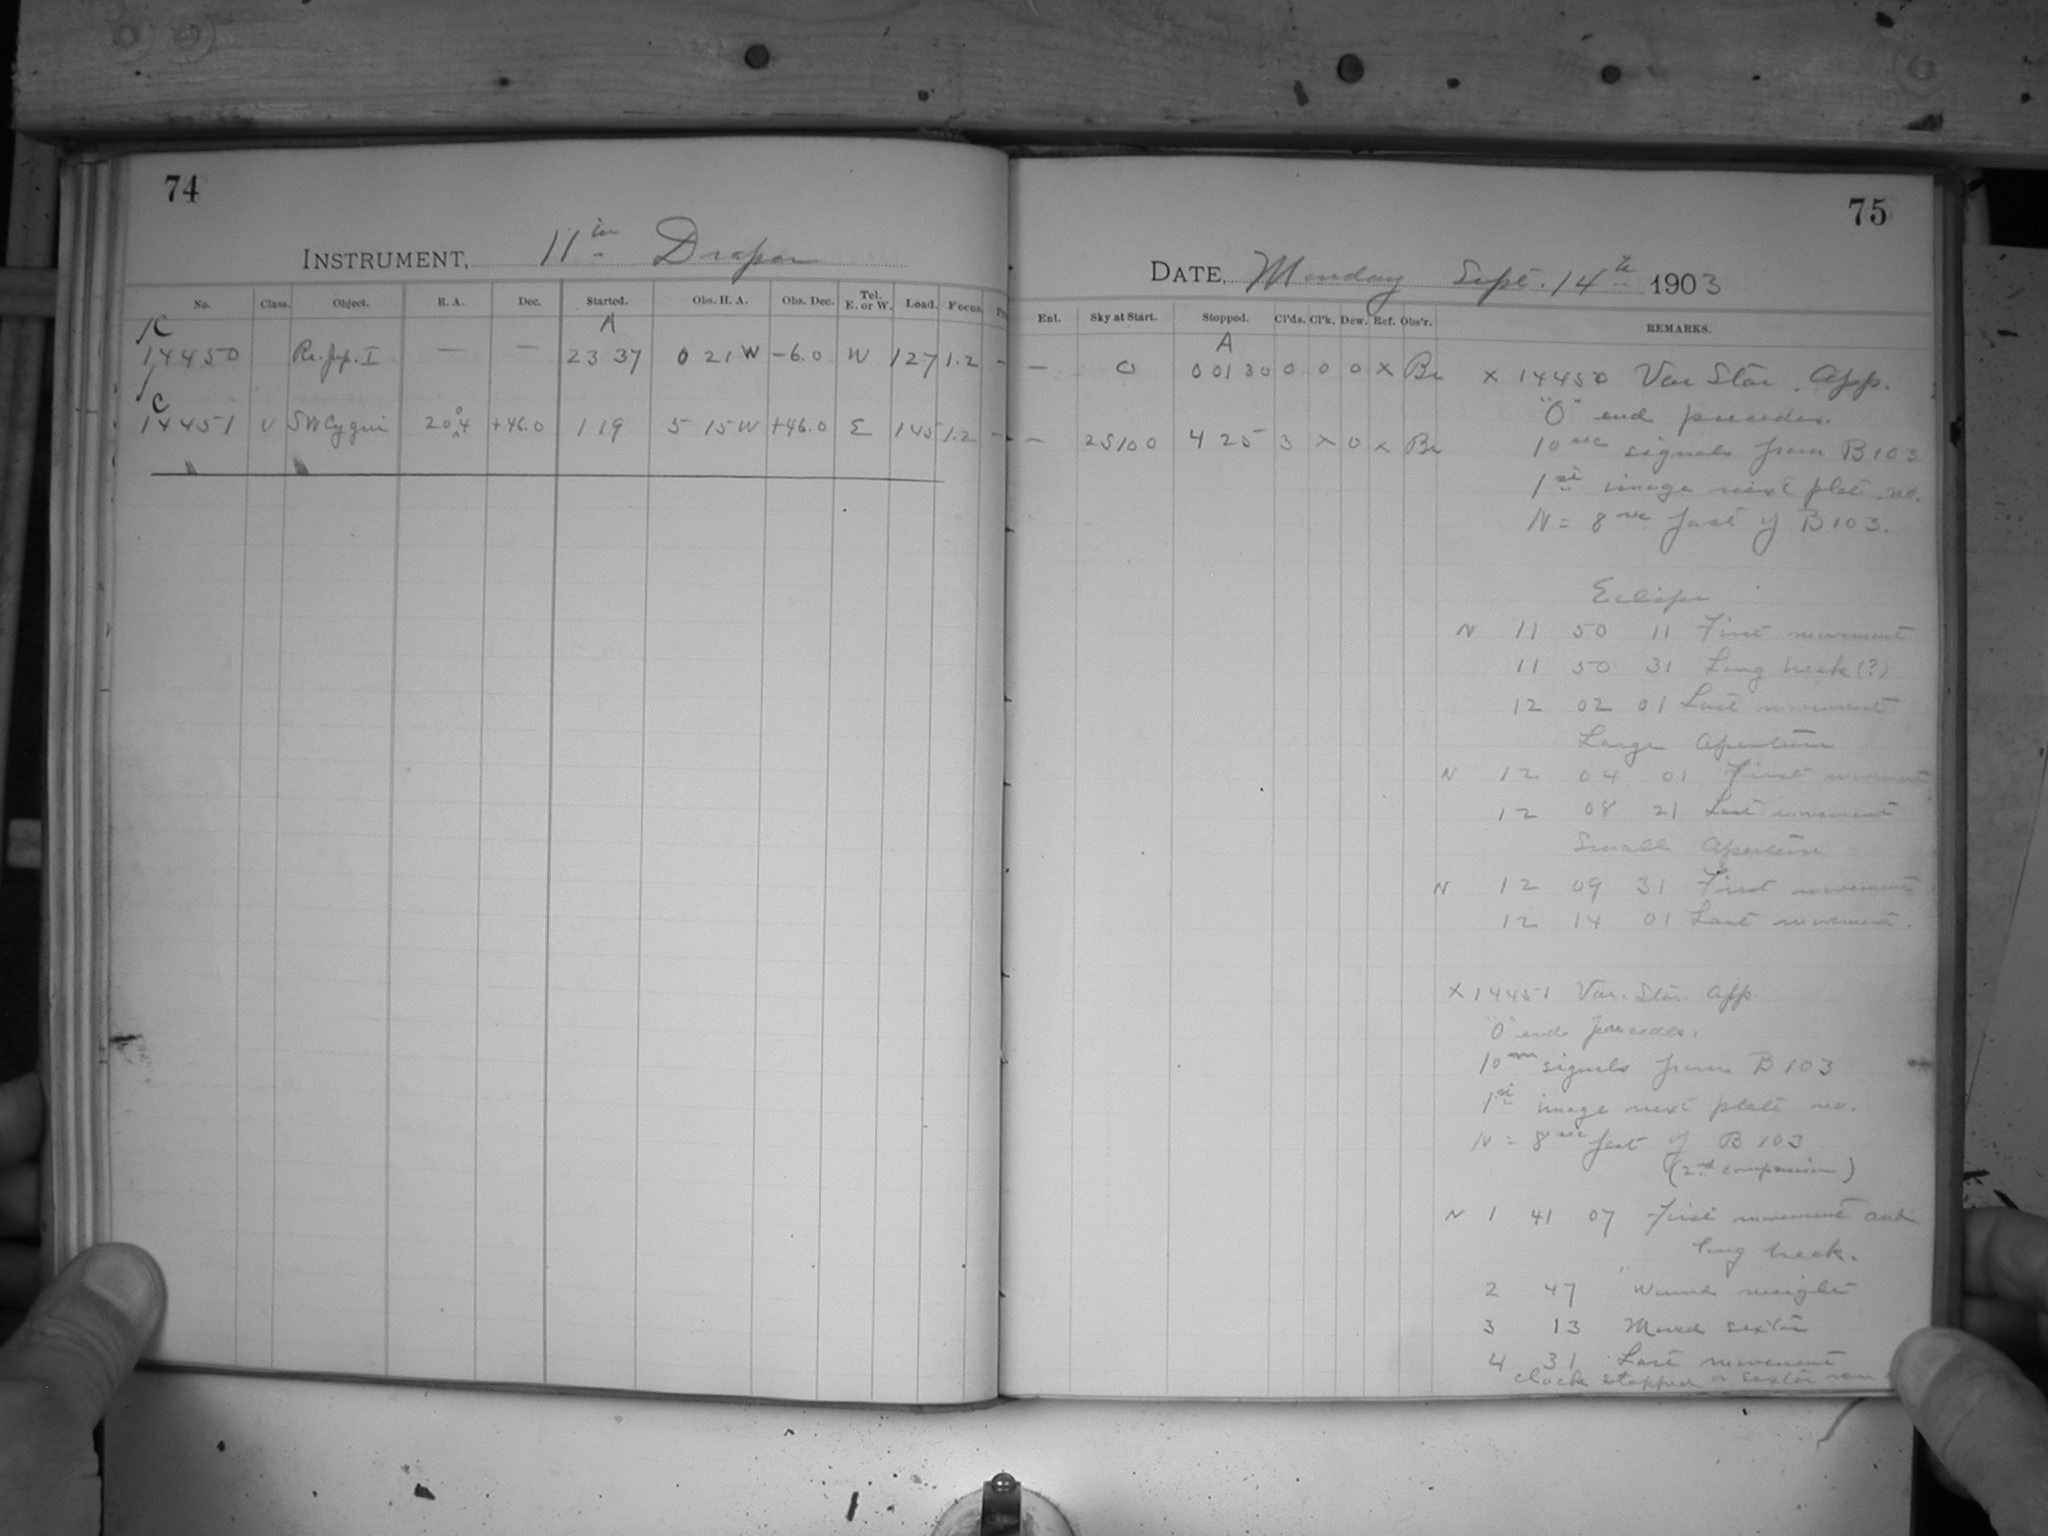 74
INSTRUMENT, 11 in Draper
No. Class. Object. R. A. Dec. Started. Obs. H. A. Obs. Dec. Tel. E. or W. Load. Focus.
C A
14450 Re. Jup. I — — 23 37 0 21 W -6.0 W 127 1.2 -
C
14451 V SW Cygni 20 0 4 +46.0 1 19 5 15 W +46.0 E 145 1.2 -
75
DATE, Monday Sept. 14th 1903
Enl. Sky at Start. Stopped. Cl'ds. Cl'k. Dew. Ref. Obs'r. REMARKS.
A
— 0 0 01 30 0 0 0 x Br x 14450 Var Star. App.
"O" end precedes.
— 25100 4 25 3 x 0 x Br 10 sec signals from B 103
1st image next plate no.
N = 8 sec fast of B 103.
Eclipse
N 11 50 11 First movement
11 50 31 Long break (?)
12 02 01 Last movement
Large Aperture
N 12 04 01 First movement
12 08 21 Last movement
Small Aperture
N 12 09 31 First movement
12 14 01 Last movement.
x 14451 Var. Star. App.
"O" end precedes.
10 signals from B 103
1st image next plate no.
N = 8 sec fast of B 103
(2nd comparison)
N 1 41 07 First movement and
long break.
2 47 Wound weight
3 13 Moved sector
4 31 Last movement
clock stopped or sector ran